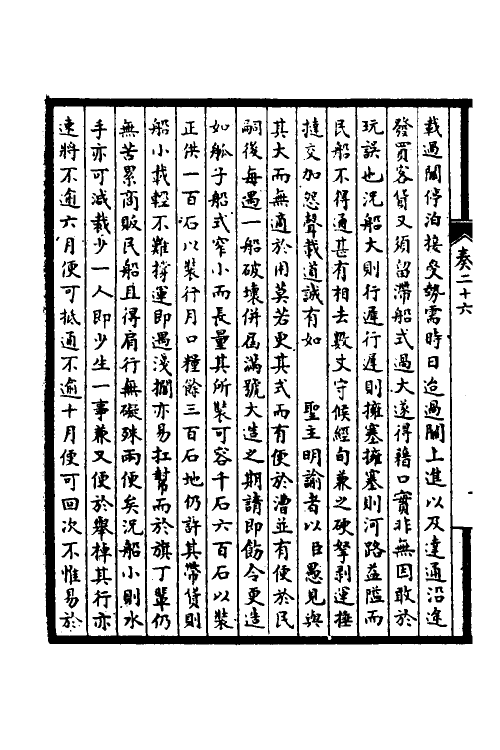 奏二十六
載過閘停泊接受勢需時日迨過閘上進以及達通沿途
發買客貨又須留滯船式過大遂得藉口實非無因敢於
玩誤也況船大則行遲行遲則擁塞擁塞則河路益隘而
民船不得通甚有相去數丈守候經旬兼之硬拏剥運捶
撻交加怨聲載道誠有如　　聖主明諭者以臣愚見與
其大而無適於用莫若更其式而有便於漕並有便於民
嗣後每遇一船破壞併屆滿號大造之期請即飭令更造
如舩子船式窄小而長量其所裝可容千石六百石以裝
正供一百石以裝行月口糧餘三百石地仍許其帶貨則
船小載輕不難撐運即遇淺擱亦易扛幫而於旗丁輩仍
無苦累商販民船且得肩行無礙殊兩便矣況船小則水
手亦可減裁少一人即少生一事兼又便於舉棹其行亦
速將不逾六月便可抵通不逾十月便可回次不惟易於